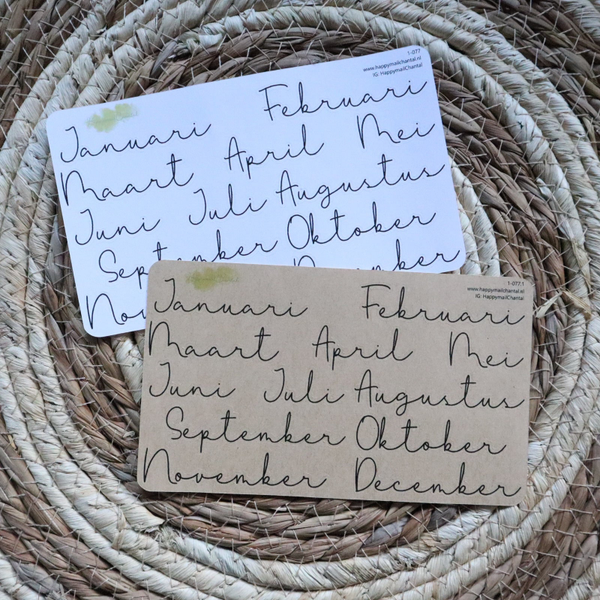 1-077
www.happymailchantal.nl
IG: HappymailChantal
Januari Februari
Maart April Mei
Juni Juli Augustus
September Oktober
1-077.1
www.happymailchantal.nl
IG: HappymailChantal
Januari Februari
Maart April Mei
Juni Juli Augustus
September Oktober
November December